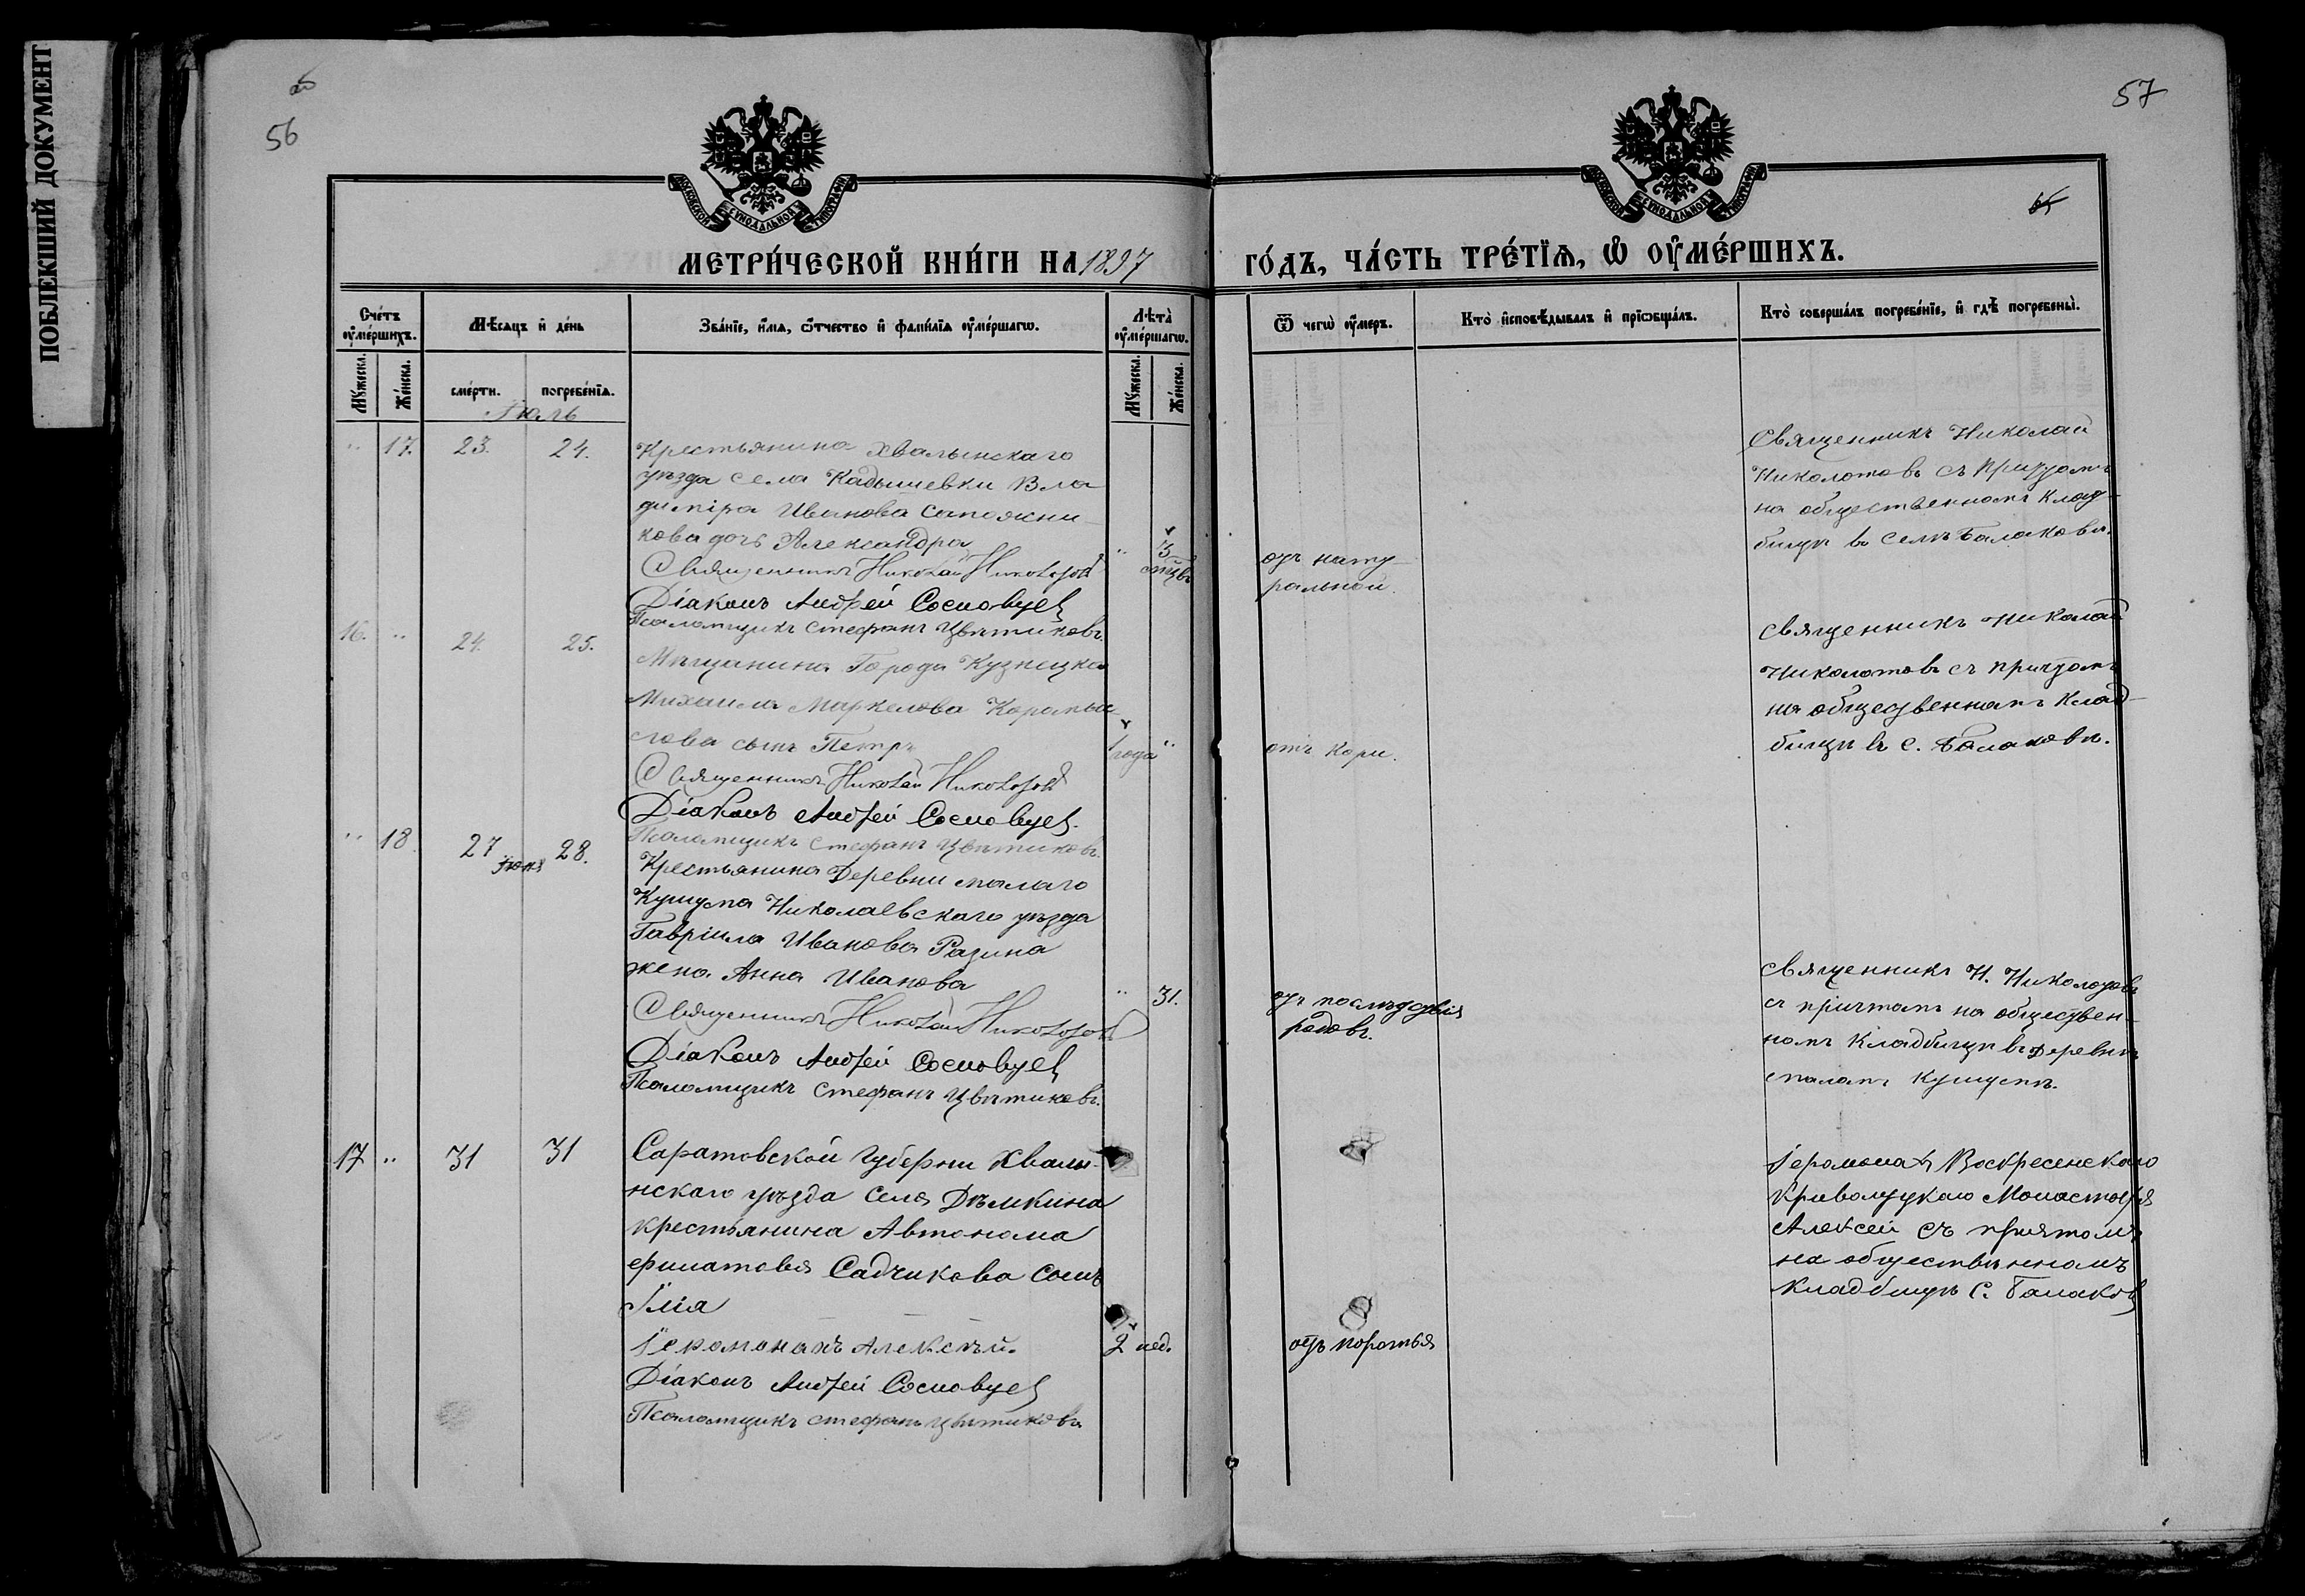 ПОБЛЕКШИЙ ДОКУМЕНТ
56
57
МОСКОВСКОЙ СУНОДАЛЬНОЙ ТИПОГРАФІИ
МОСКОВСКОЙ СУНОДАЛЬНОЙ ТИПОГРАФІИ
МЕТРИ́ЧЕСКОЙ КНИ́ГИ НА 1897
ГО́ДЪ, ЧА́СТЬ ТРЕ́ТЇѦ, Ѡ҆ ОУ҆МЕ́РШИХЪ.
Сче́тъ оу҆ме́ршихъ.
Мѣсѧцъ и҆ де́нь
Зва́нїе, и҆́мѧ, ѻ҆́тчество и҆ фами́лїѧ оу҆ме́ршагѡ.
Лѣта̀ оу҆ме́ршагѡ.
Ѿ чегѡ̀ оу҆́меръ.
Кто̀ и҆сповѣдывалъ и҆ прїѡбща́лъ.
Кто̀ соверша́лъ погребе́нїе, и҆ гдѣ̀ погребены̀.
Мꙋ́жеска.
Же́нска.
сме́рти.
погребе́нїѧ.
Мꙋ́жеска.
Же́нска.
Іюль
" 17. 23. 24.
Крестьянина Хвалынскаго
уѣзда села Кадышевки Вла
диміра Иванова Сапожни-
кова дочь Александра
Священникъ Николай Николотовъ
Діаконъ Андрей Сосновцев
Псаломщикъ Стефанъ Цвѣтиковъ.
" 3
отъ нату
ральной.
Священникъ Николай
Николотовъ съ причтомъ
на общественномъ клад-
бищѣ въ селѣ Балаковѣ.
16. " 24. 25.
Мѣщанина Города Кузнецка
Михаила Маркелова
слова сынъ Петръ
Священникъ Николай Николотовъ
Діаконъ Андрей Сосновцев.
Псаломщикъ Стефанъ Цвѣтиковъ.
1 года "
отъ кори.
Священникъ Николай
Николотовъ съ причтомъ
на общественномъ клад-
бищѣ въ с. Балаковѣ.
" 18 27 28.
Крестьянина Деревни малаго
Кушума Николаевскаго уѣзда
Гавріила Иванова Разина
жена Анна Иванова
Священникъ Николай Николотовъ
Діаконъ Андрей Сосновцев
Псаломщикъ Стефанъ Цвѣтиковъ.
" 31.
отъ послѣдствія
родовъ.
Священникъ Н. Николотовъ
съ причтомъ на обществен-
номъ кладбищѣ въ деревнѣ
маломъ Кушумѣ.
17 " 31 31
Саратовской губерни Хвалы-
нскаго уѣзда села Дѣмкина
крестьянина Автонома
Филатова Садчикова сынъ
Ілія
Іеромонахъ Алексѣй.
Діаконъ Андрей Сосновцев
Псаломщикъ Стефанъ Цвѣтиковъ
2 нед.
отъ
Іеромонахъ Воскресенскаго
Криволуцкаго Монастыря
Алексей съ
на общественномъ
кладбищѣ С. Балаков